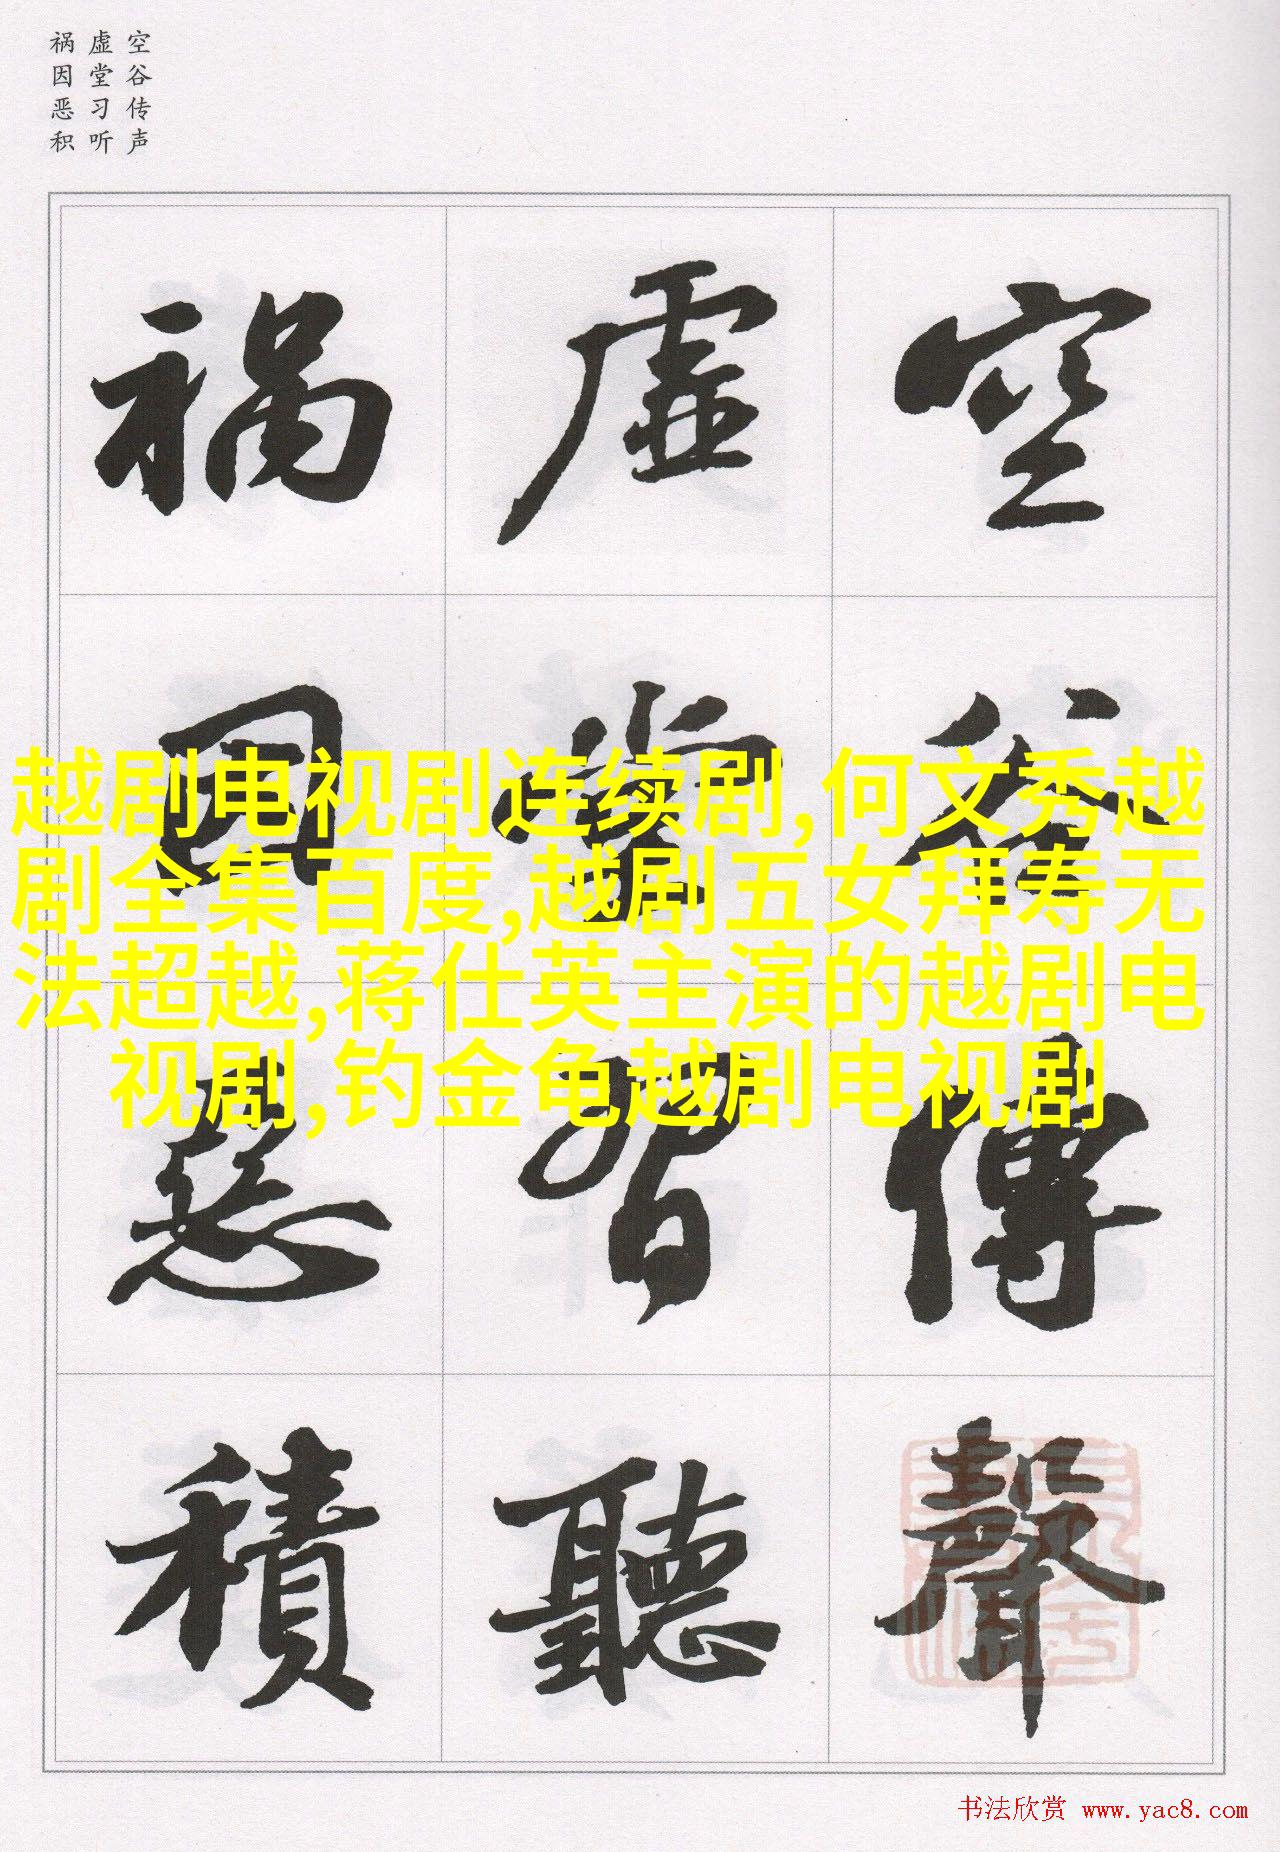 空谷传声
虚堂习听
祸因恶积
空谷傳聲
虚堂習聽
祸因惡積
越剧电视剧连续剧,何文秀越
剧全集百度,越剧五女拜寿无
法超越,蒋仕英主演的越剧电
视剧,钓金龟越剧电视剧
书法欣赏 www.yac8.com